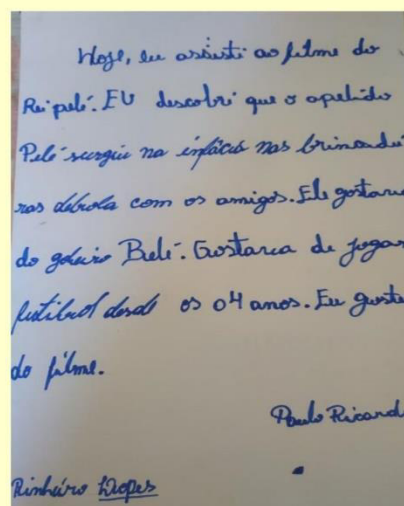 Hoje, eu assisti ao filme do
Rei pelé. EU descobri que o apelido
Pelé surgiu na infâcia nas brincadei
ras debola com os amigos. Ele gostava
do goleiro Belé. Gostaria de jogar
futibol desde os 04 anos. Eu gostei
do filme.
Paulo Ricard
Pinheiro Lopes